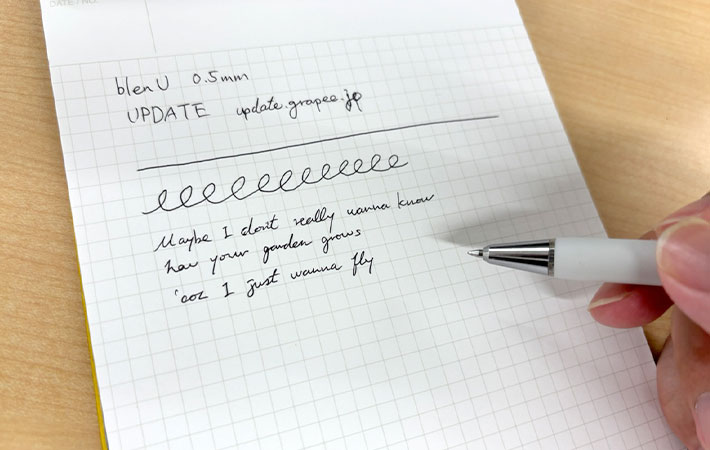 DATE / NO.
blen U 0.5mm
UPDATE update.grapee.jp
Maybe I don't really wanna know
how your garden grows
'coz I just wanna fly